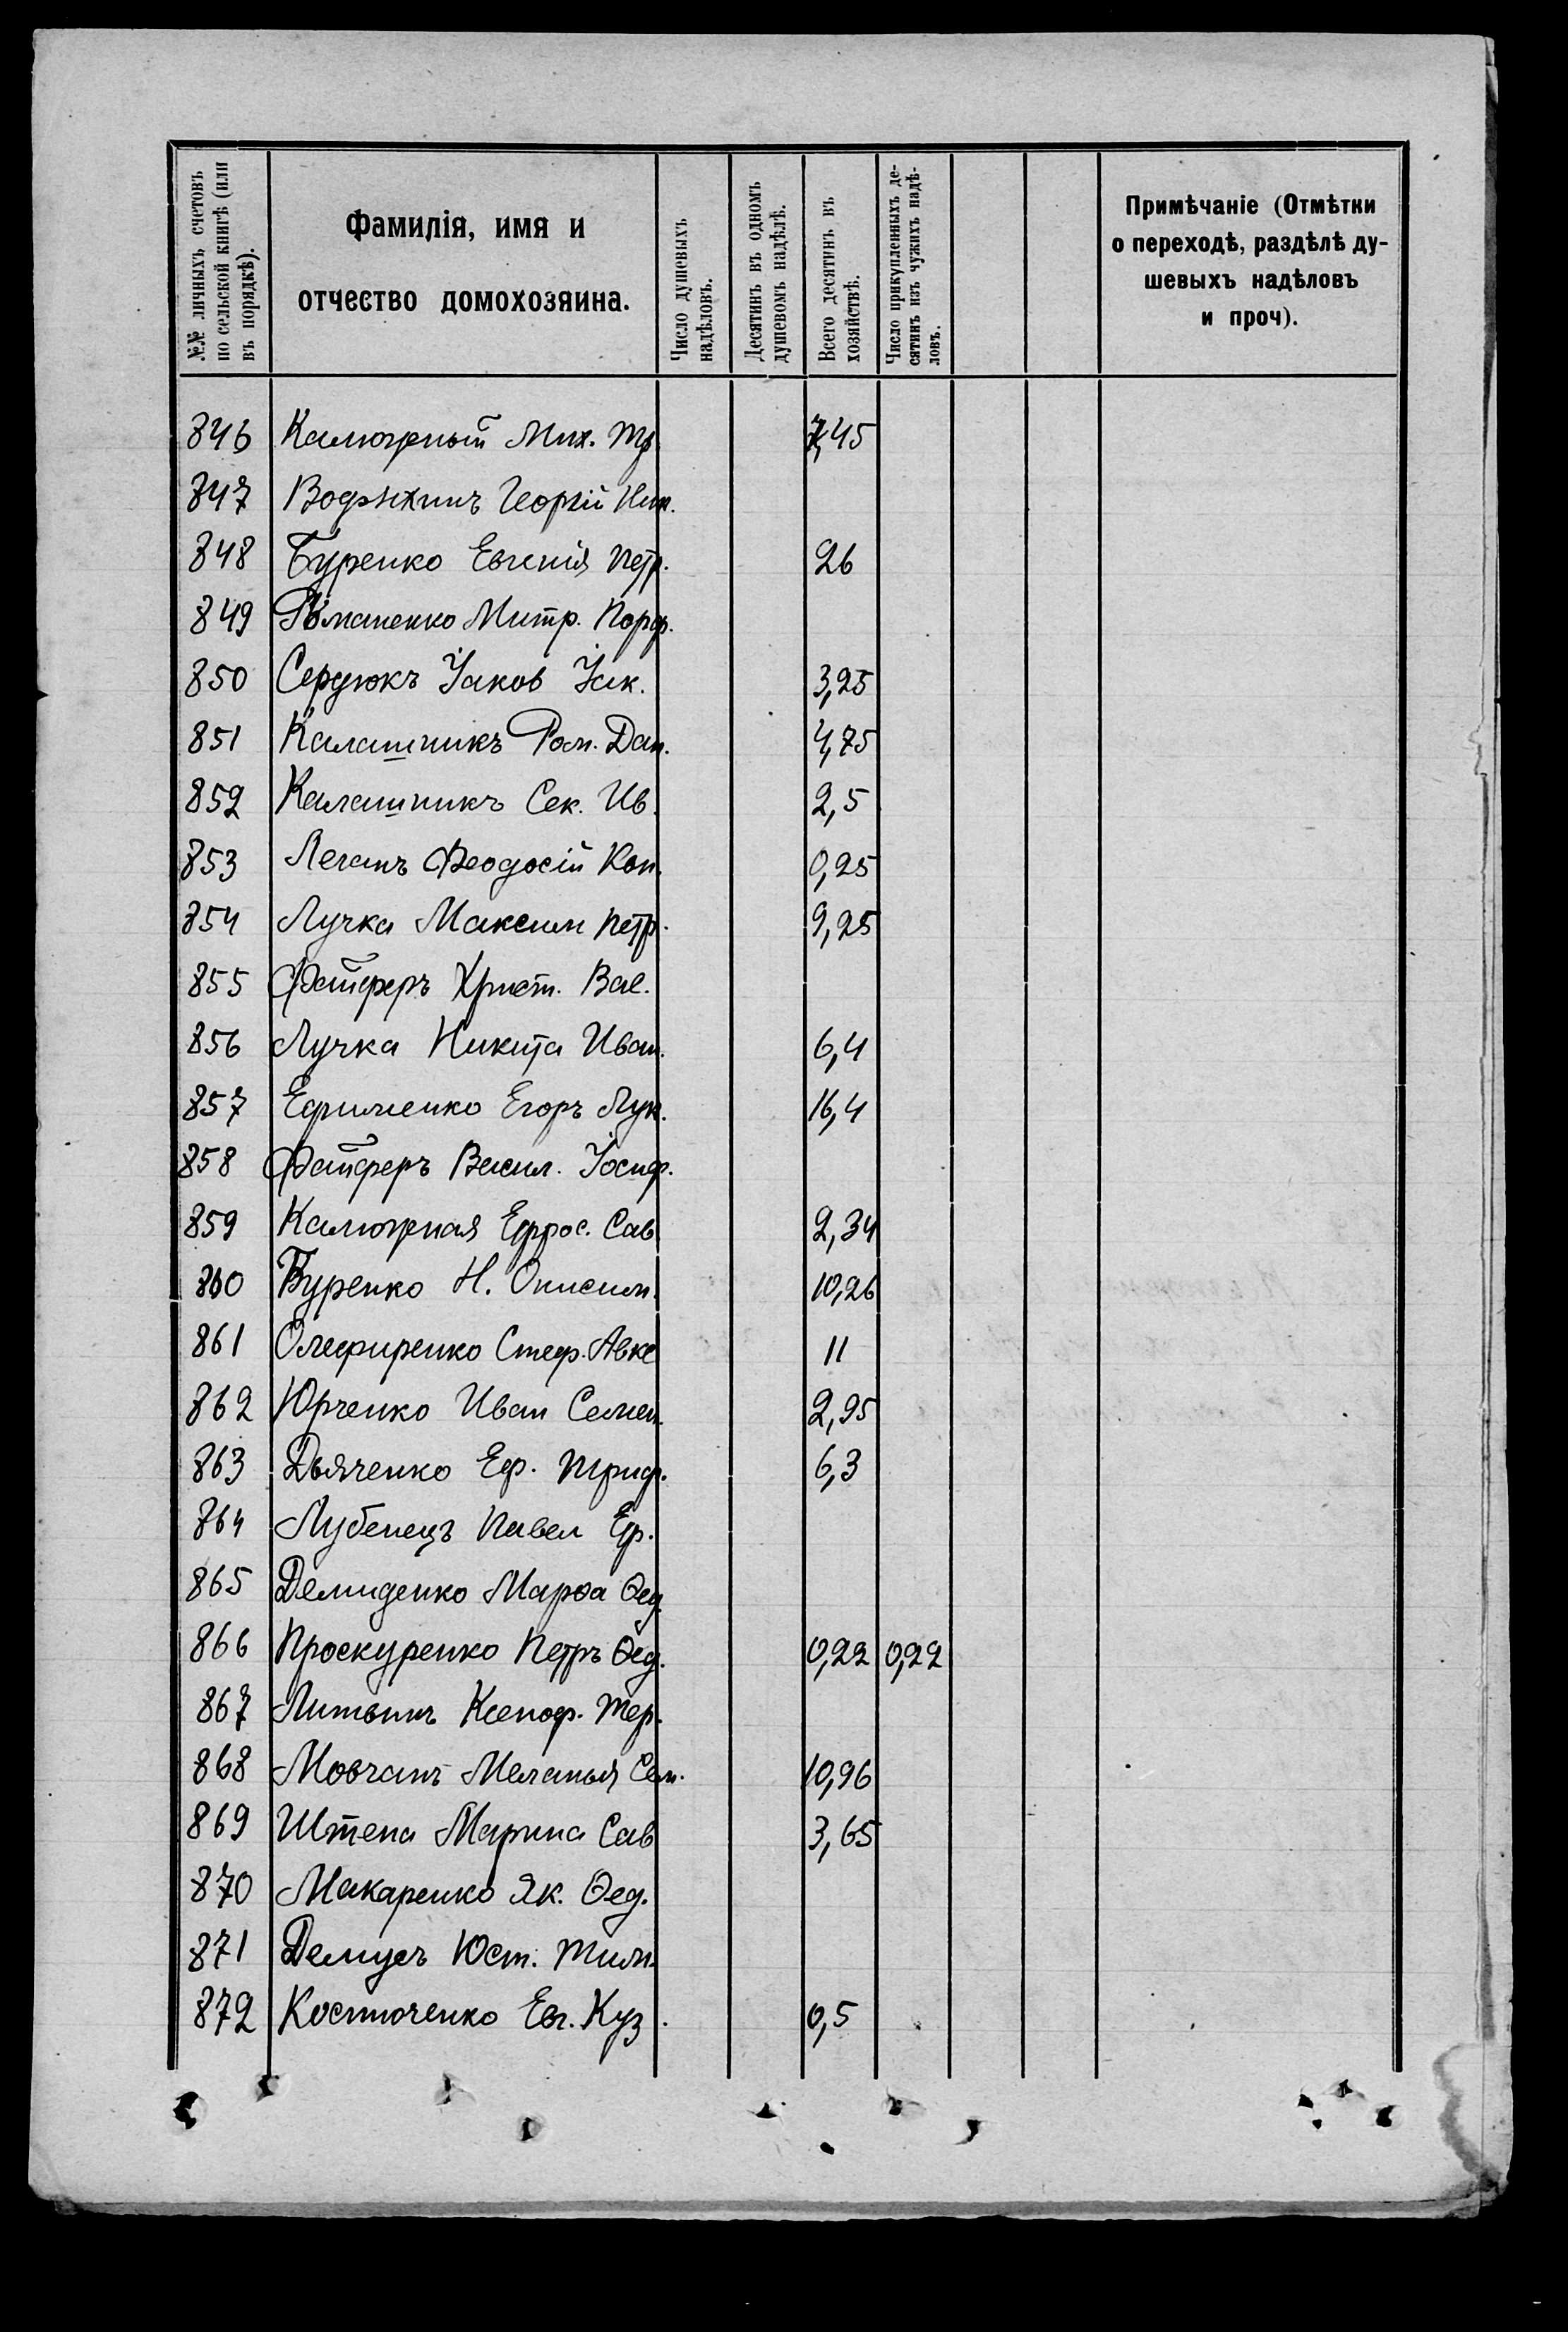 №№ личныхъ счетовъ по сельской книгѣ (или въ порядкѣ).
Фамилія, имя и отчество домохозяина.
Число душевыхъ надѣловъ.
Десятинъ въ одномъ душевомъ надѣлѣ.
Всего десятинъ въ хозяйствѣ.
Число прикупленныхъ десятинъ изъ чужихъ надѣловъ.
Примѣчаніе (Отмѣтки о переходѣ, раздѣлѣ душевыхъ надѣловъ и проч).
846 Калюжный Мих. Тр. 7,45
847 Георгій Ник.
848 Буренко Евгенія Петр. 26
849 Романенко Митр. Порф.
850 Сердюкъ Іаков Іак. 3,25
851 Калашникъ Ром. Дан. 4,75
852 Калашникъ Сек. Ив. 2,5
853 Леганъ Феодосій Кон. 0,25
854 Лучка Максим Петр. 9,25
855 Фатферъ Христ. Вас.
856 Лучка Никита Иван. 6,4
857 Ефименко Егоръ Лук. 16,4
858 Фатферъ Васил. Іосиф.
859 Калюжная Ефрос. Сав. 2,34
860 Буренко Н. Онисим. 10,26
861 Олефиренко Стеф. Авкс 11
862 Юрченко Иван Семен. 2,95
863 Дьяченко Еф. Триф. 6,3
864 Лубенецъ Павел Еф.
865 Демиденко Марѳа Ѳед.
866 Проскуренко Петръ Ѳед. 0,22 0,22
867 Литвинъ Ксеноф. Тер.
868 Мовчанъ Меланья Сем. 10,96
869 Штепа Марина Сав 3,65
870 Макаренко Як. Ѳед.
871 Демусъ Юст. Тим.
872 Костюченко Евг. Куз. 0,5